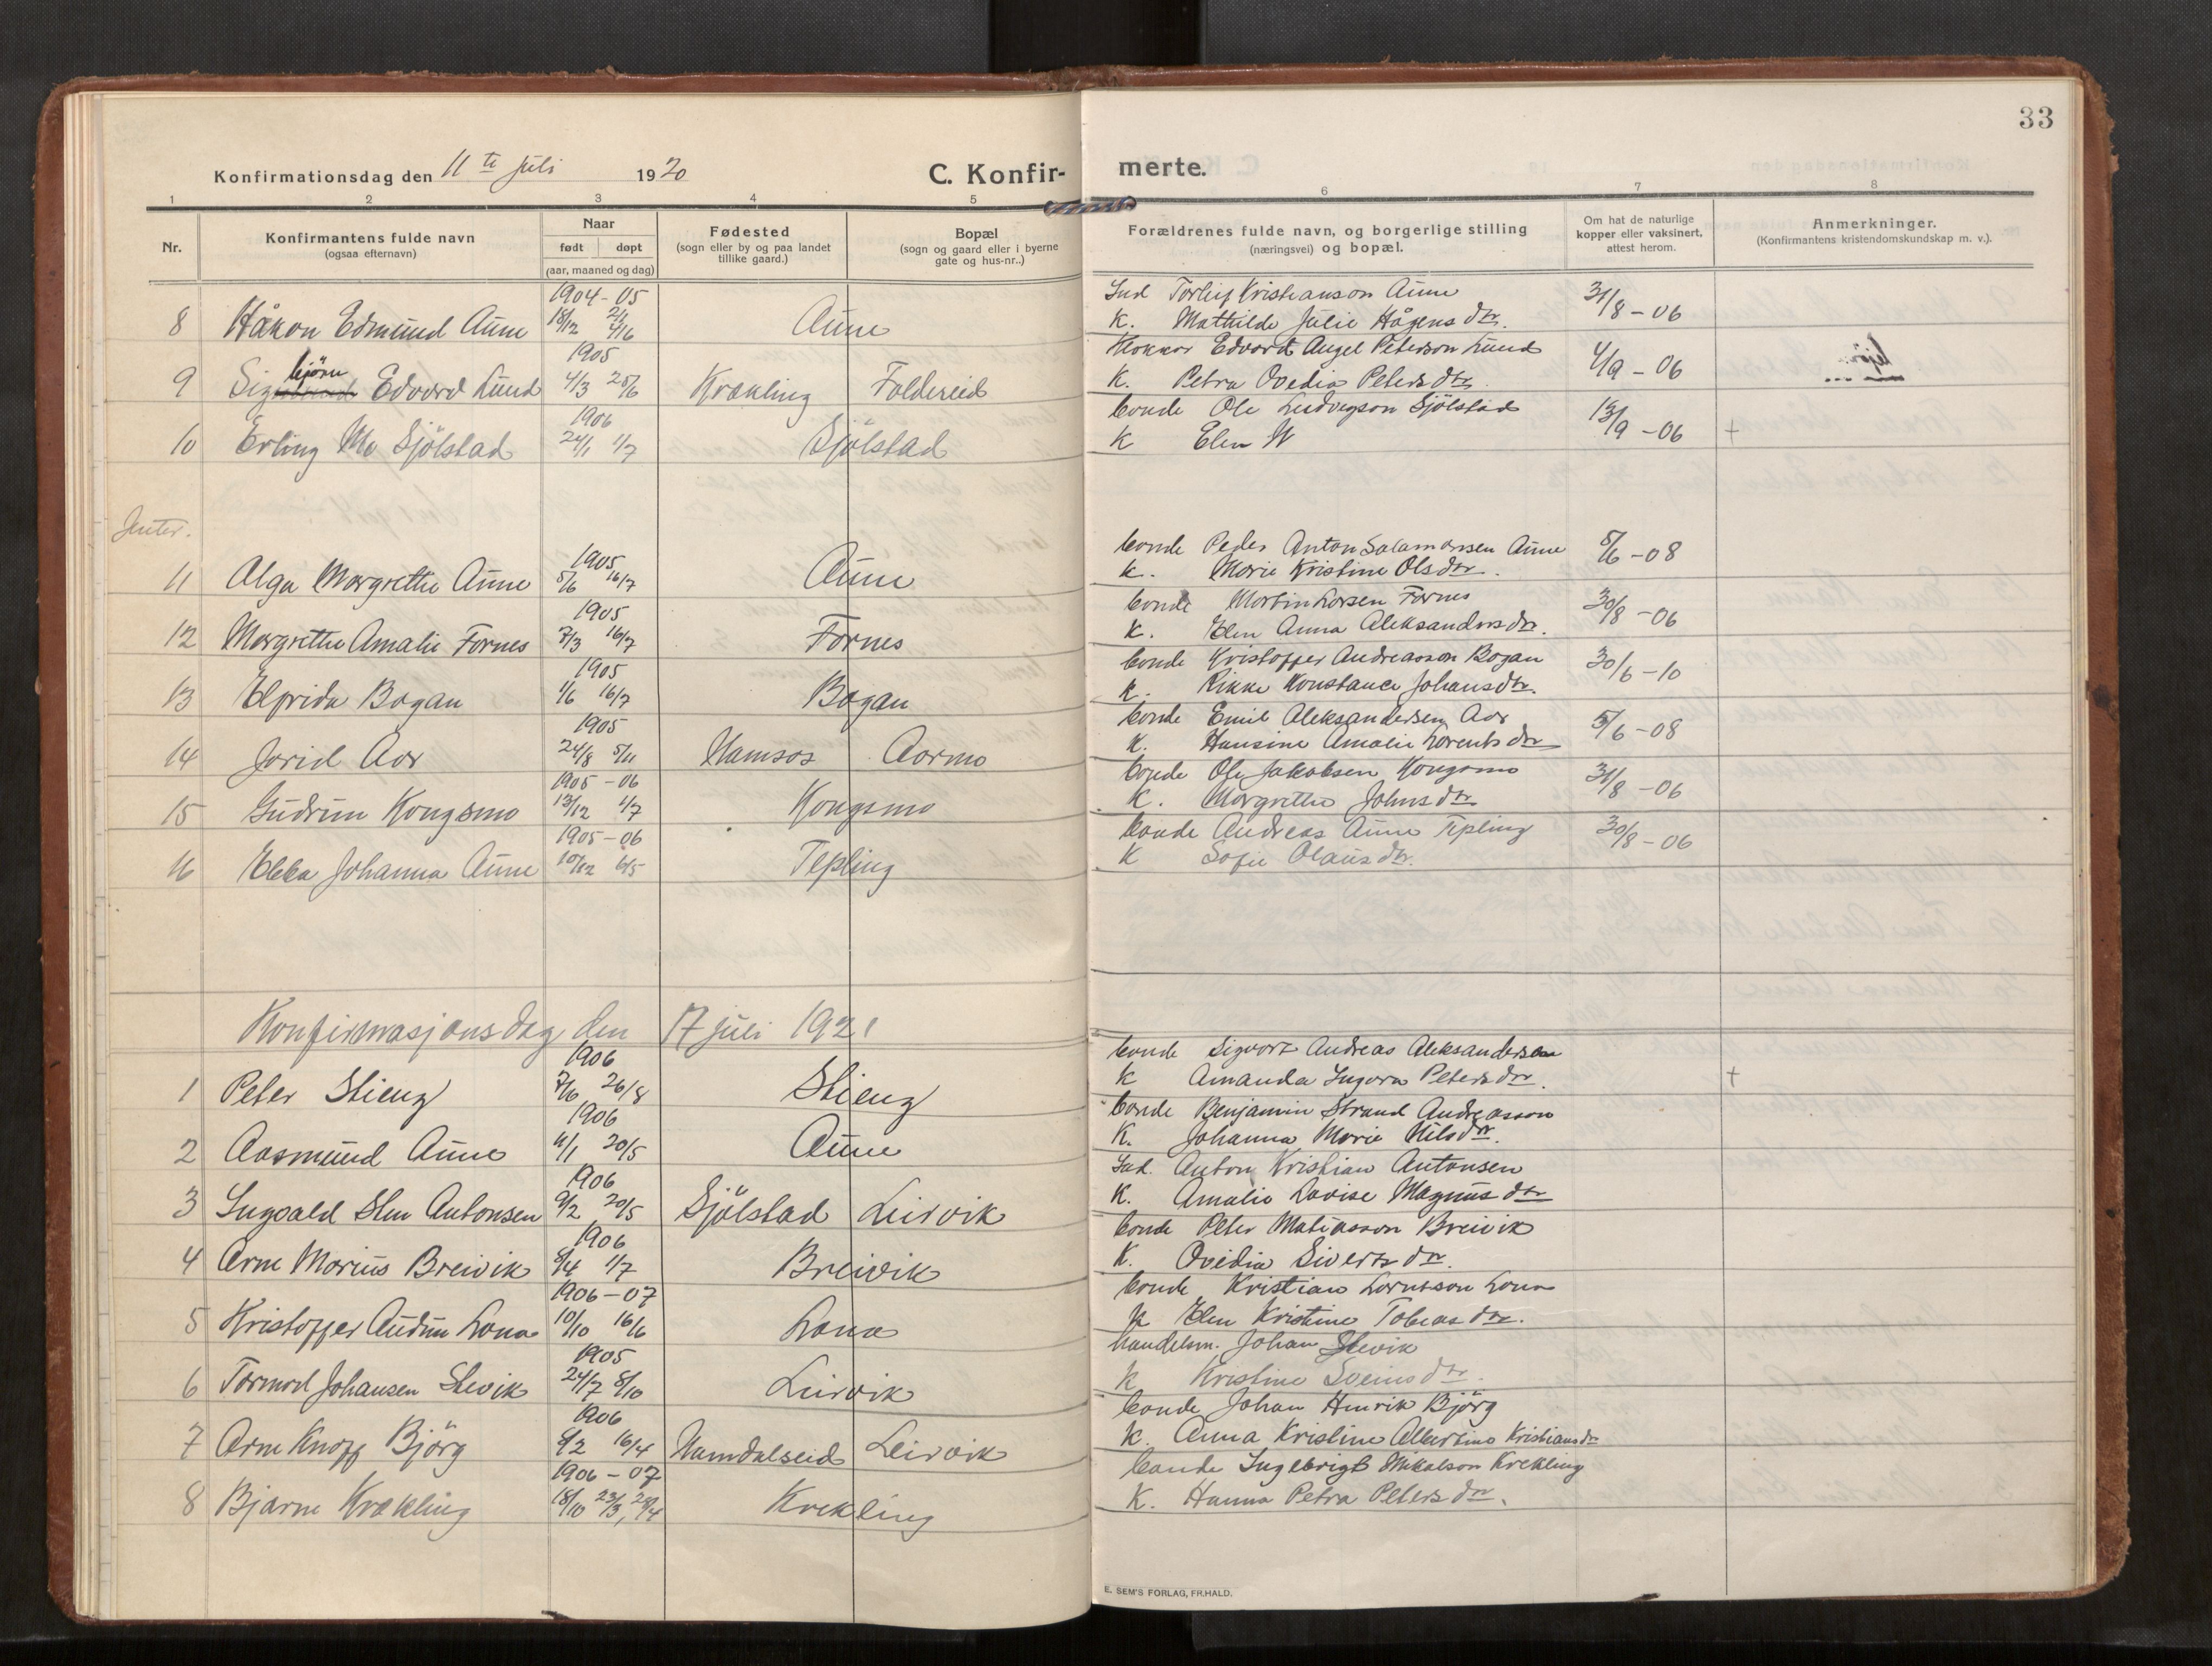 33
Konfirmationsdag den 11te Juli 1920 C. Konfir- merte.
1 2 3 4 5 6 7 8
Nr. Konfirmantens fulde navn (ogsaa efternavn) Naar født døpt (aar, maaned og dag) Fødested (sogn eller by og paa landet tillike gaard.) Bopæl (sogn og gaard eller i byerne gate og hus-nr..) Forældrenes fulde navn, og borgerlige stilling (næringsvei) og bopæl. Om hat de naturlige kopper eller vaksinert, attest herom. Anmerkninger. (Konfirmantens kristendomskundskap m. v.).
1904-05 Ind Torleif Kristianson Aune
8 Håkon Edmund Aune 18/12 Aune K. Mathilde Julie Hågensdtr. 31/8-06
1905 Klokker Edvard Angel Peterson Lund
9 Sigbjörn Edvard Lund 4/3 25/6 Krækling Foldereid K. Petra Ovedia Petersdtr. 4/9-06
1906 bonde Ole Ludvigson Sjölstad
10 Erling Mo Sjölstad 24/1 1/7 Sjölstad K Elen N 13/9-06 +
Jenter.
1905 bonde Peder Anton Salamonsen Aune
11 Alga Margrethe Aune 5/6 16/7 Aune K. Marie Kristine Olsdtr. 5/6-08
1905 bonde Martin Larsen Fornes
12 Margrethe Amalie Fornes 7/3 16/7 Fornes K. Elen Anna Aleksandersdtr. 30/8-06
1905 bonde Kristoffer Andreasson Bogan
13 Elfrida Bogan 1/6 16/7 Bogan K. Rikke Konstance Johansdtr. 30/6-10
1905 bonde Emil Aleksandersen Aar
14 Jorid Aar 24/8 5/11 Namsos Aarmo K. Hansine Amalie Lorentsdtr 5/6-08
1905-06 bonde Ole Jakobsen Kongsmo
15 Gudrun Kongsmo 13/12 1/7 Kongsmo K. Margrethe Johnsdtr 31/8-06
1905-06 bonde Andreas Aune Tepling
16 Ebba Johanna Aune 10/12 6/5 Tepling K Sofie Olausdtr. 30/8-06
Konfirmasjonsdag den 17 juli 1921
1906 bonde Sigvart Andreas Aleksandersen
1 Peter Stieng 7/6 26/8 Stieng K Amanda Ingvara Petersdtr. +
1906 bonde Benjamin Strand Andreasson
2 Aasmund Aune 11/1 20/5 Aune K. Johanna Marie Nilsdtr.
1906 Ind. Anton Kristian Antonsen
3 Ingvald Sten Antonsen 9/2 20/5 Sjölstad Leirvik K. Amalie Lovise Magnusdtr
1906 bonde Peter Matiasson Breivik
4 Arne Marius Breivik 8/4 1/7 Breivik K. Ovidia Sivertsdtr.
1906-07 bonde Kristian Lorntson Lona
5 Kristoffer Audun Lona 10/10 16/6 Lona K Elen Kristine Tobiasdtr.
1905 handelsm. Johan Slevik
6 Tormod Johansen Slevik 24/7 8/10 Leirvik K Kristine Sveinsdtr.
1906 bonde Johan Henrik Björg
7 Arne Knoff Björg 9/2 16/4 Namdalseid Leirvik K. Anna Kristine Albertine Kristiansdtr
1906-07 bonde Ingebrigt Mikalson Krekling
8 Bjarne Krækling 18/10 23/3, 28/4 Krekling K. Hanna Petra Petersdtr.
E. SEM'S FORLAG, FR.HALD.